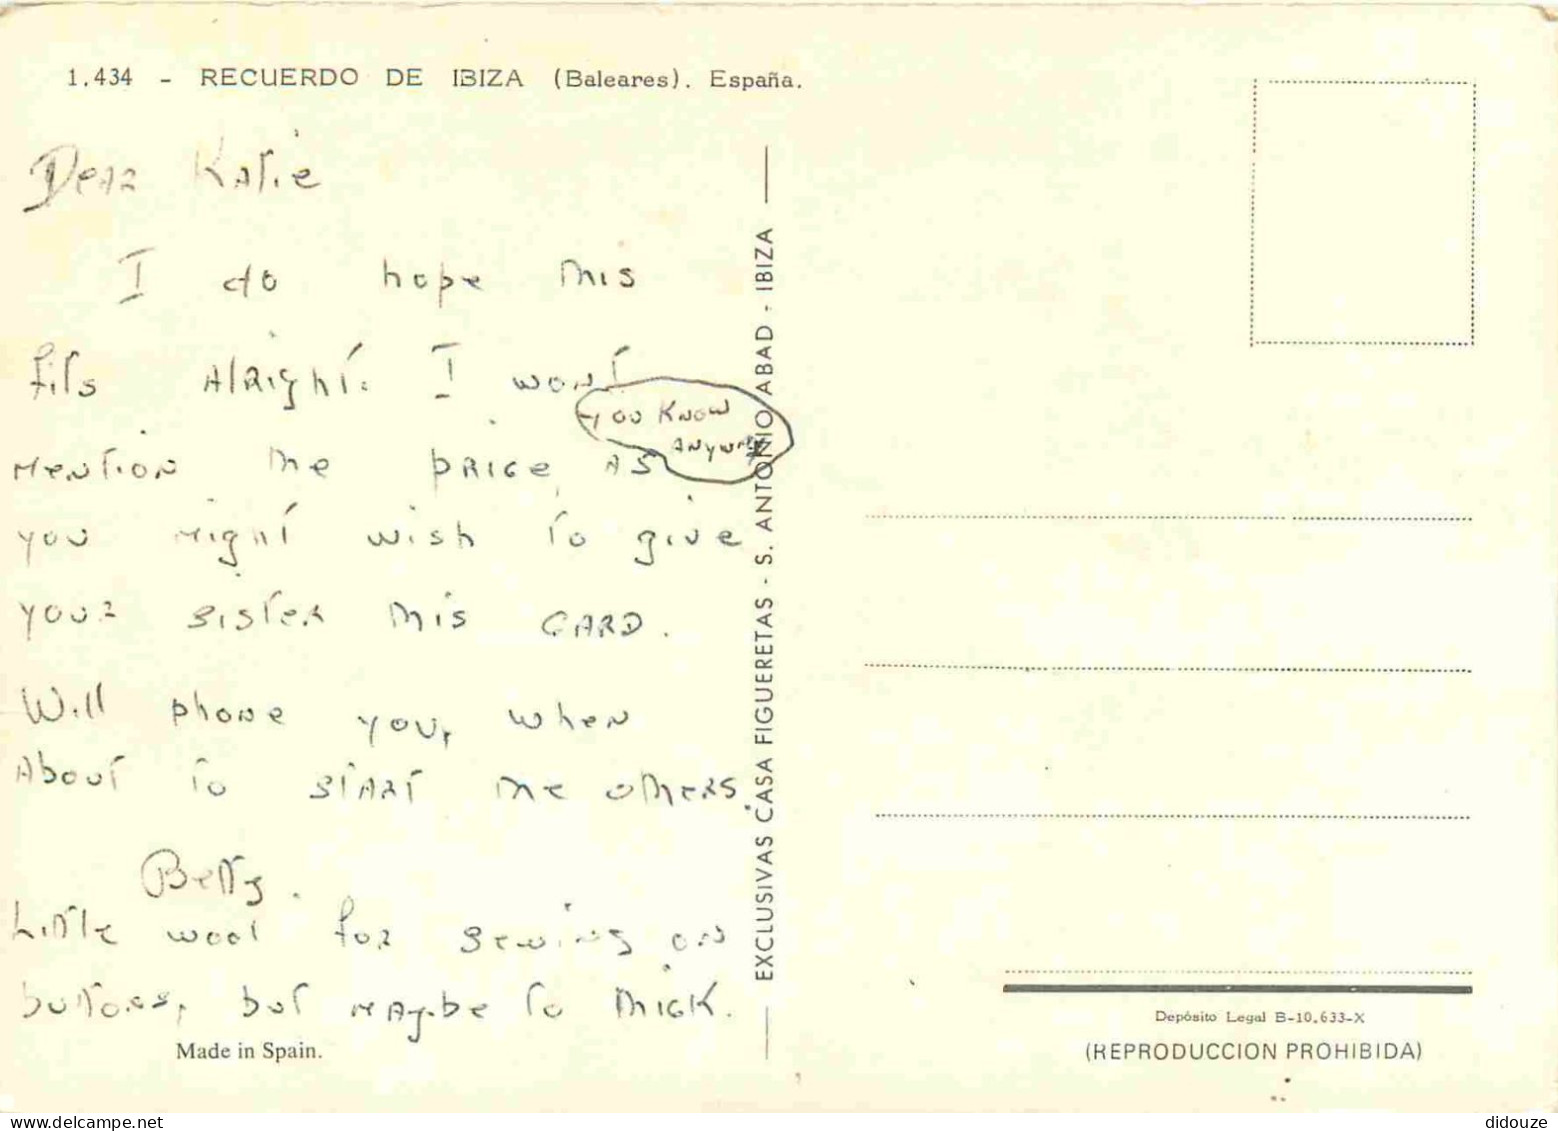 1.434 - RECUERDO DE IBIZA (Baleares). España.
Dear Katie
I do hope this
fits alright. I wont
you know
anyway
mention the price, as
you might wish to give
your sister this card.
Will phone you, when
about to start the others.
Betty.
Little wool for sewing on
buttons, but maybe to thick.
Made in Spain.
EXCLUSIVAS CASA FIGUERETAS - S. ANTONIO ABAD - IBIZA
Depósito Legal B-10.633-X
(REPRODUCCION PROHIBIDA)
didouze